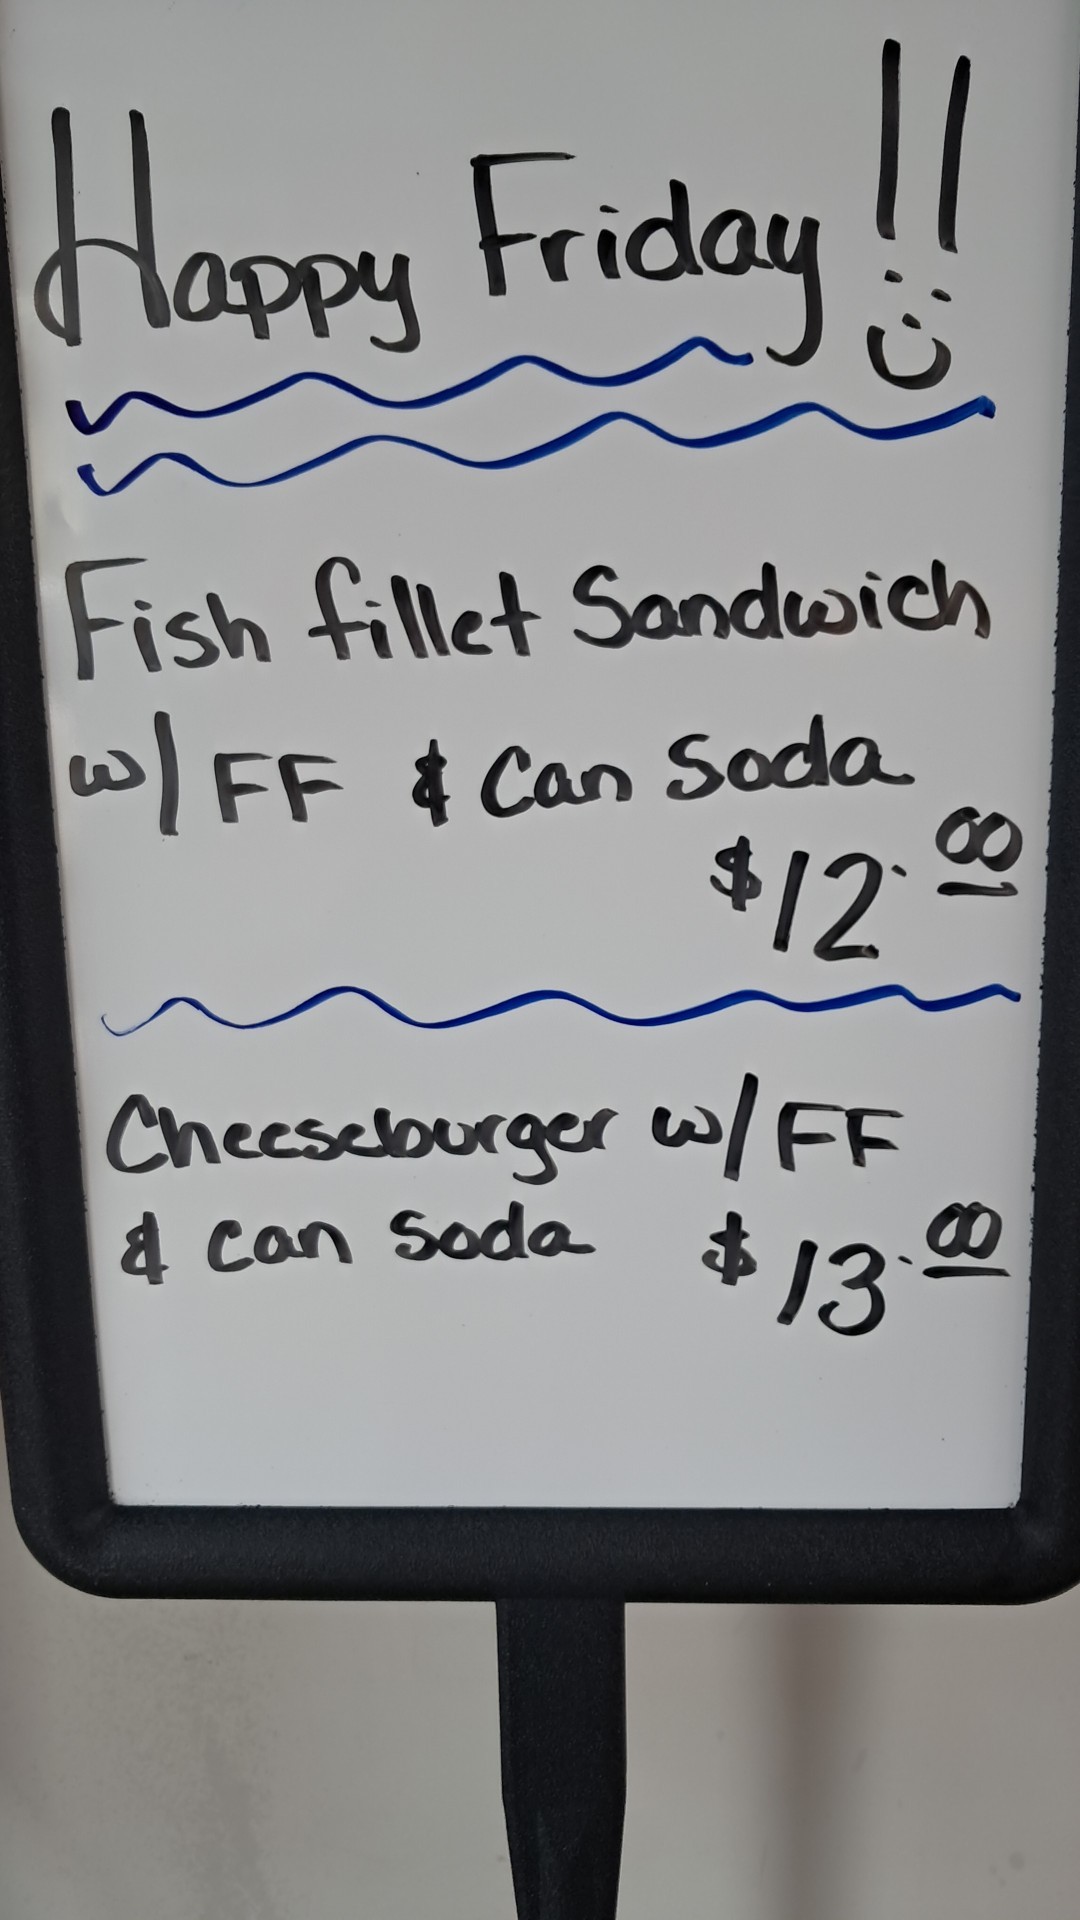 Happy Friday !!
Fish fillet Sandwich
w/ FF & Can Soda
$12.00
Cheeseburger w/ FF
& can Soda $13.00